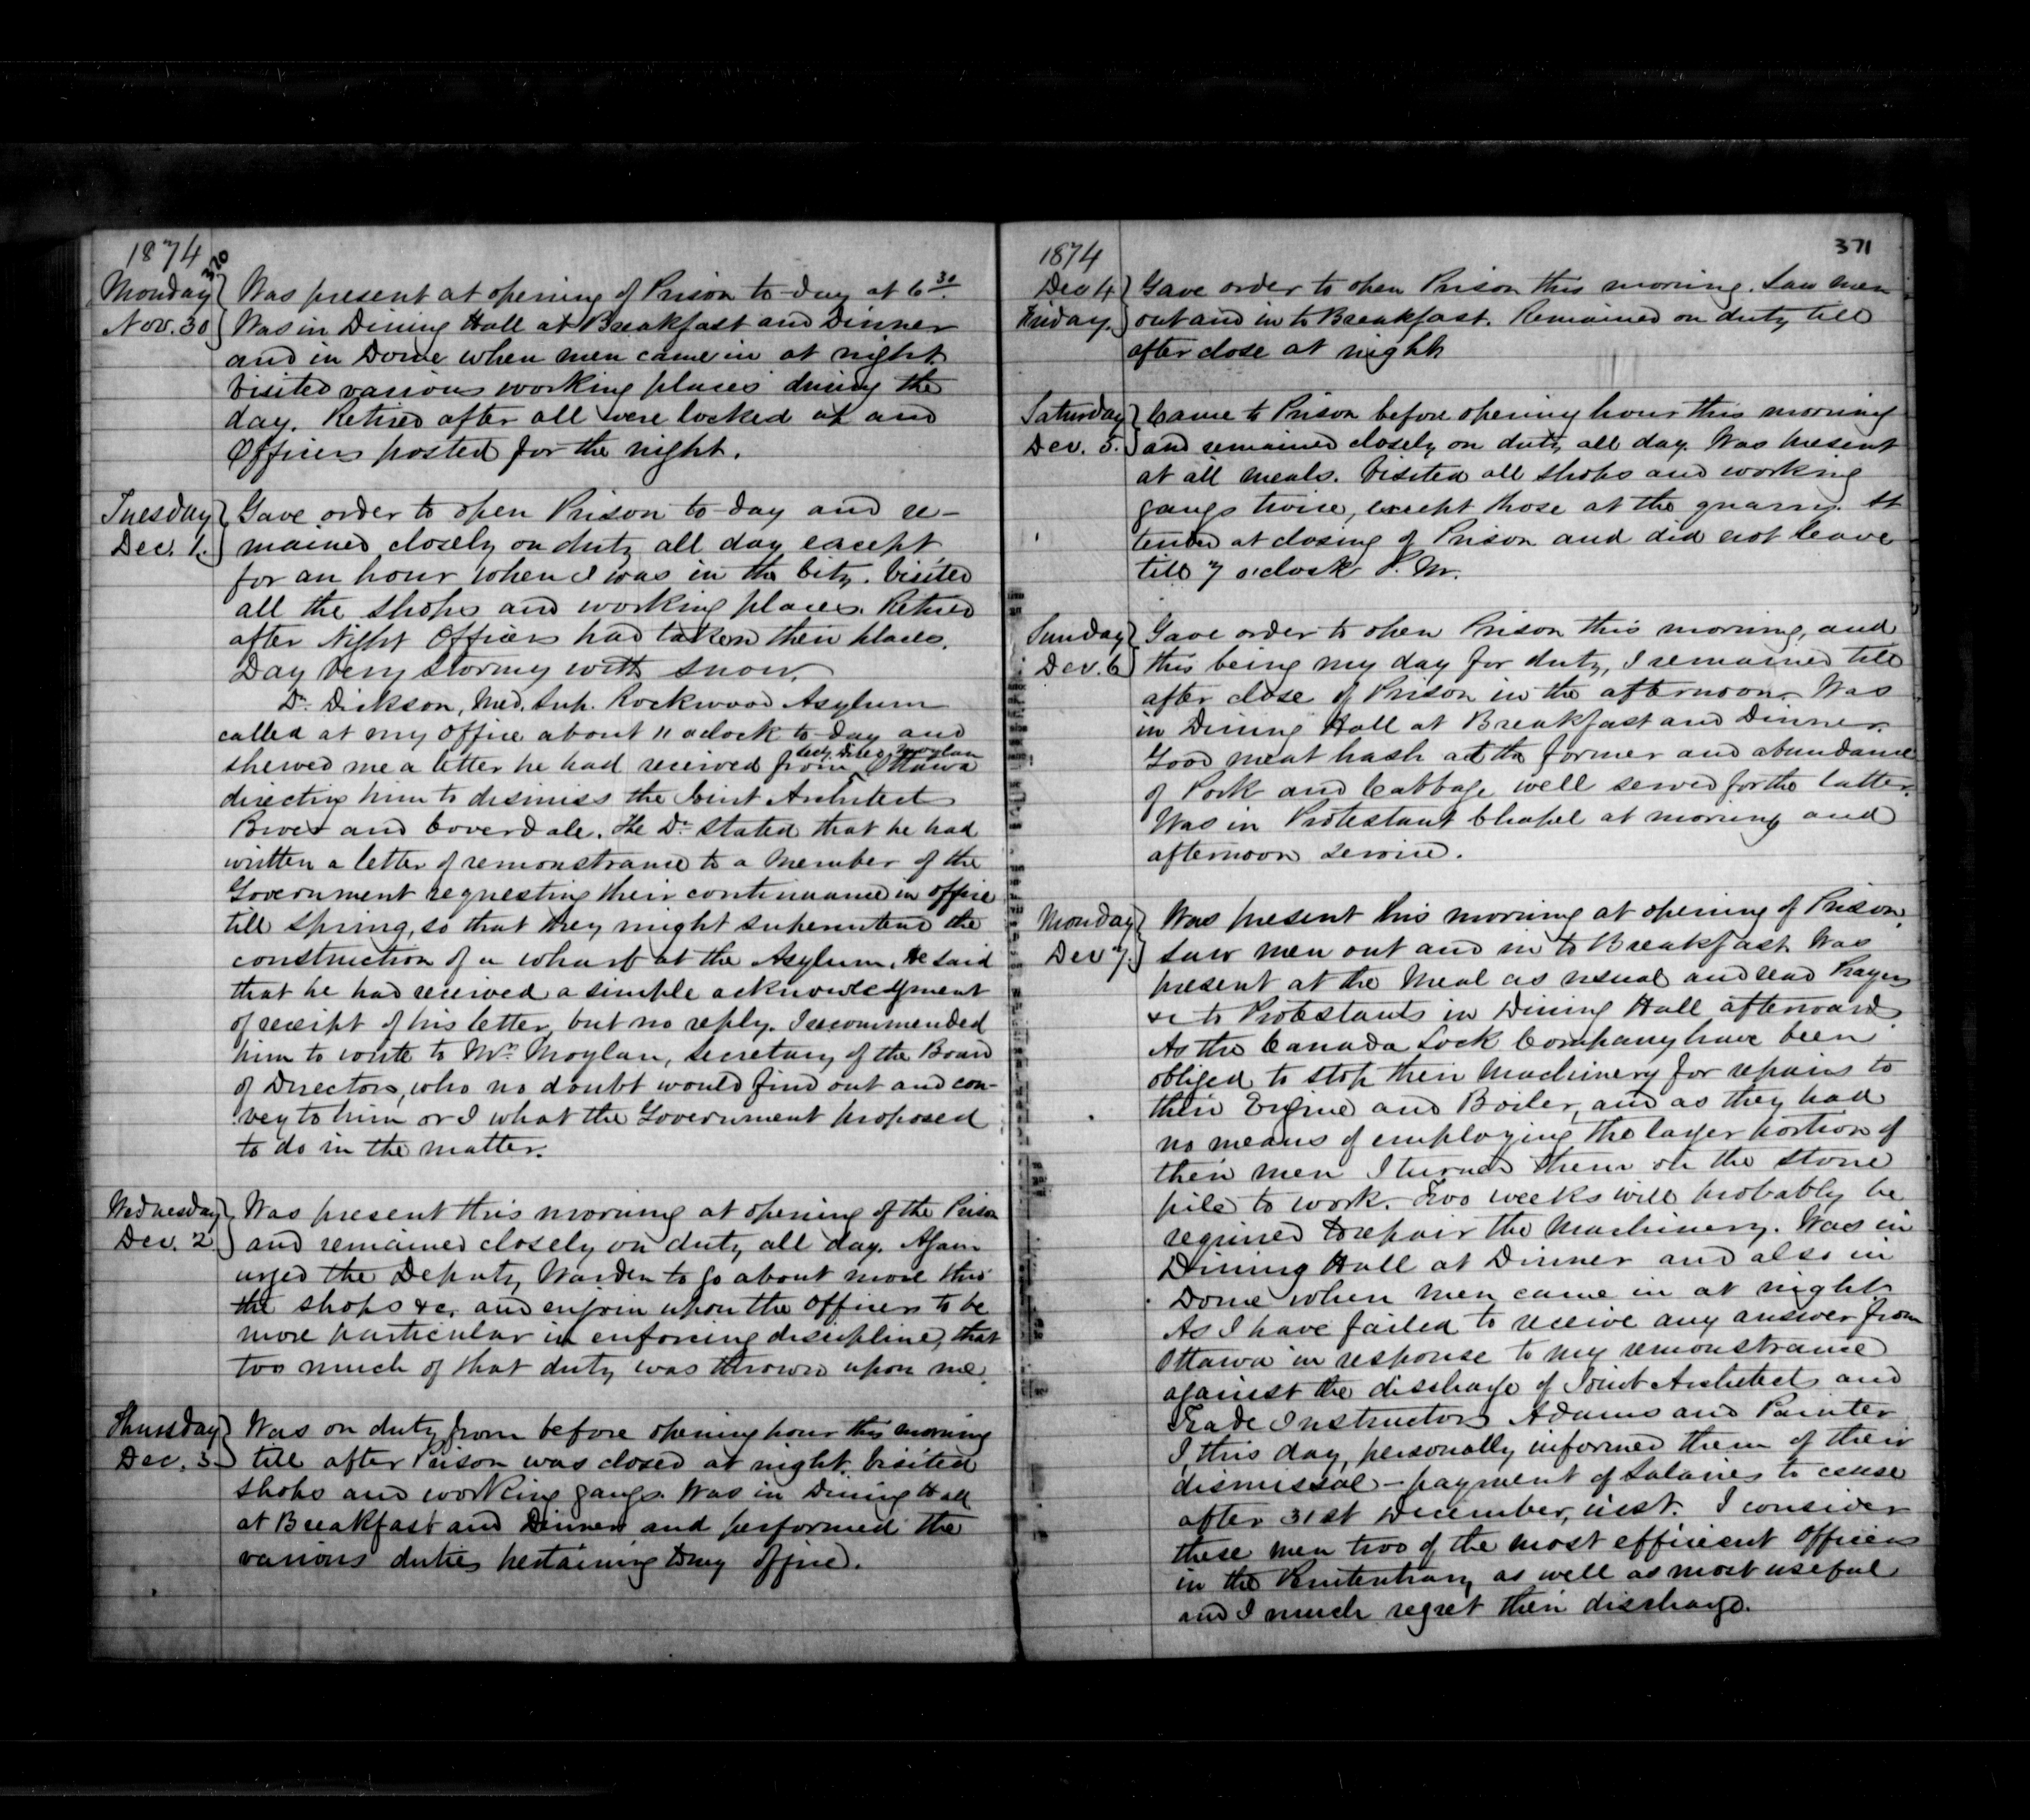 1874
370
Monday Nov. 30 } Was present at opening of Prison to-day at 6 30.
Was in Dining Hall at Breakfast and Dinner
and in Dome when men came in at night
Visited various working places during the
day. Retired after all were locked up and
Officers posted for the night.
Tuesday Dec. 1. } Gave order to open Prison to-day and re-
mained closely on duty all day except
for an hour when I was in the City. Visited
all the shops and working places. Retired
after Night Officers had taken their places.
Day very stormy with snow.
Dr. Dickson, Med. Sup. Rockwood Asylum
called at my office about 11 oclock to-day and
shewed me a letter he had received from Secy. Direc. Moylan Ottawa
directing him to dismiss the Joint Architects
Power and Coverdale. The Dr. stated that he had
written a letter of remonstrance to a Member of the
Government requesting their continuance in office
till Spring, so that they might superintend the
construction of a wharf at the Asylum. He said
that he had received a simple acknowledgment
of receipt of his letter, but no reply. I recommended
him to write to Mr. Moylan, Secretary of the Board
of Directors, who no doubt would find out and con-
vey to him or I what the Government proposed
to do in the matter.
Wednesday Dec. 2 } Was present this morning at opening of the Prison
and remained closely on duty all day. Again
urged the Deputy Warden to go about more thro'
the shops &c, and enjoin upon the Officers to be
more particular in enforcing discipline, that
too much of that duty was thrown upon me.
Thursday Dec. 3 } Was on duty from before opening hour this morning
till after Prison was closed at night. Visited
shops and working gangs. Was in Dining Hall
at Breakfast and Dinner and performed the
various duties pertaining to my office.
1874
371
Dec 4 Friday. } Gave order to open Prison this morning. Saw men
out and in to Breakfast. Remained on duty till
after close at night
Saturday Dec. 5. } Came to Prison before opening hour this morning
and remained closely on duty all day. Was present
at all meals. Visited all shops and working
gangs twice, except those at the quarry. At
tended at closing of Prison and did not leave
till 7 o'clock P.M.
Sunday Dec. 6 } Gave order to open Prison this morning, and
this being my day for duty, I remained till
after close of Prison in the afternoon. Was
in Dining Hall at Breakfast and Dinner.
Good meat hash at the former and abundance
of Pork and Cabbage well served for the latter.
Was in Protestant Chapel at morning and
afternoon service.
Monday Dec 7. } Was present this morning at opening of Prison.
Saw men out and in to Breakfast. Was
present at the Meal as usual and read Prayers
&c to Protestants in Dining Hall afterwards.
As the Canada Lock Company have been
obliged to stop their Machinery for repairs to
their Engine and Boiler, and as they had
no means of employing the larger portion of
their men I turned them on the stone
pile to work. Two weeks will probably be
required to repair the Machinery. Was in
Dining Hall at Dinner and also in
Dome when men came in at night
As I have failed to receive any answer from
Ottawa in response to my remonstrance
against the discharge of Joint Architects and
Trade Instructors Adams and Painter
I this day, personally informed them of their
dismissal - payment of Salaries to cease
after 31st December, inst. I consider
these men two of the most efficient Officers
in the Penitentiary as well as most useful
and I much regret their discharge.